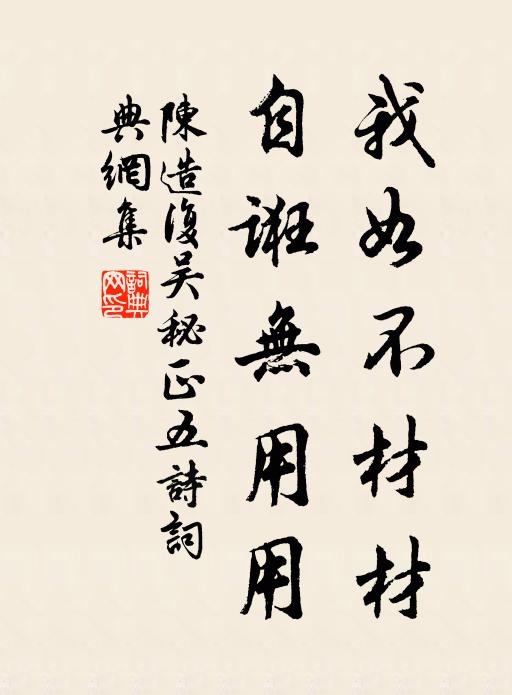 我如不材材
自誑無用用
陳造復吳秘正五詩詞
典網集
詞典網印